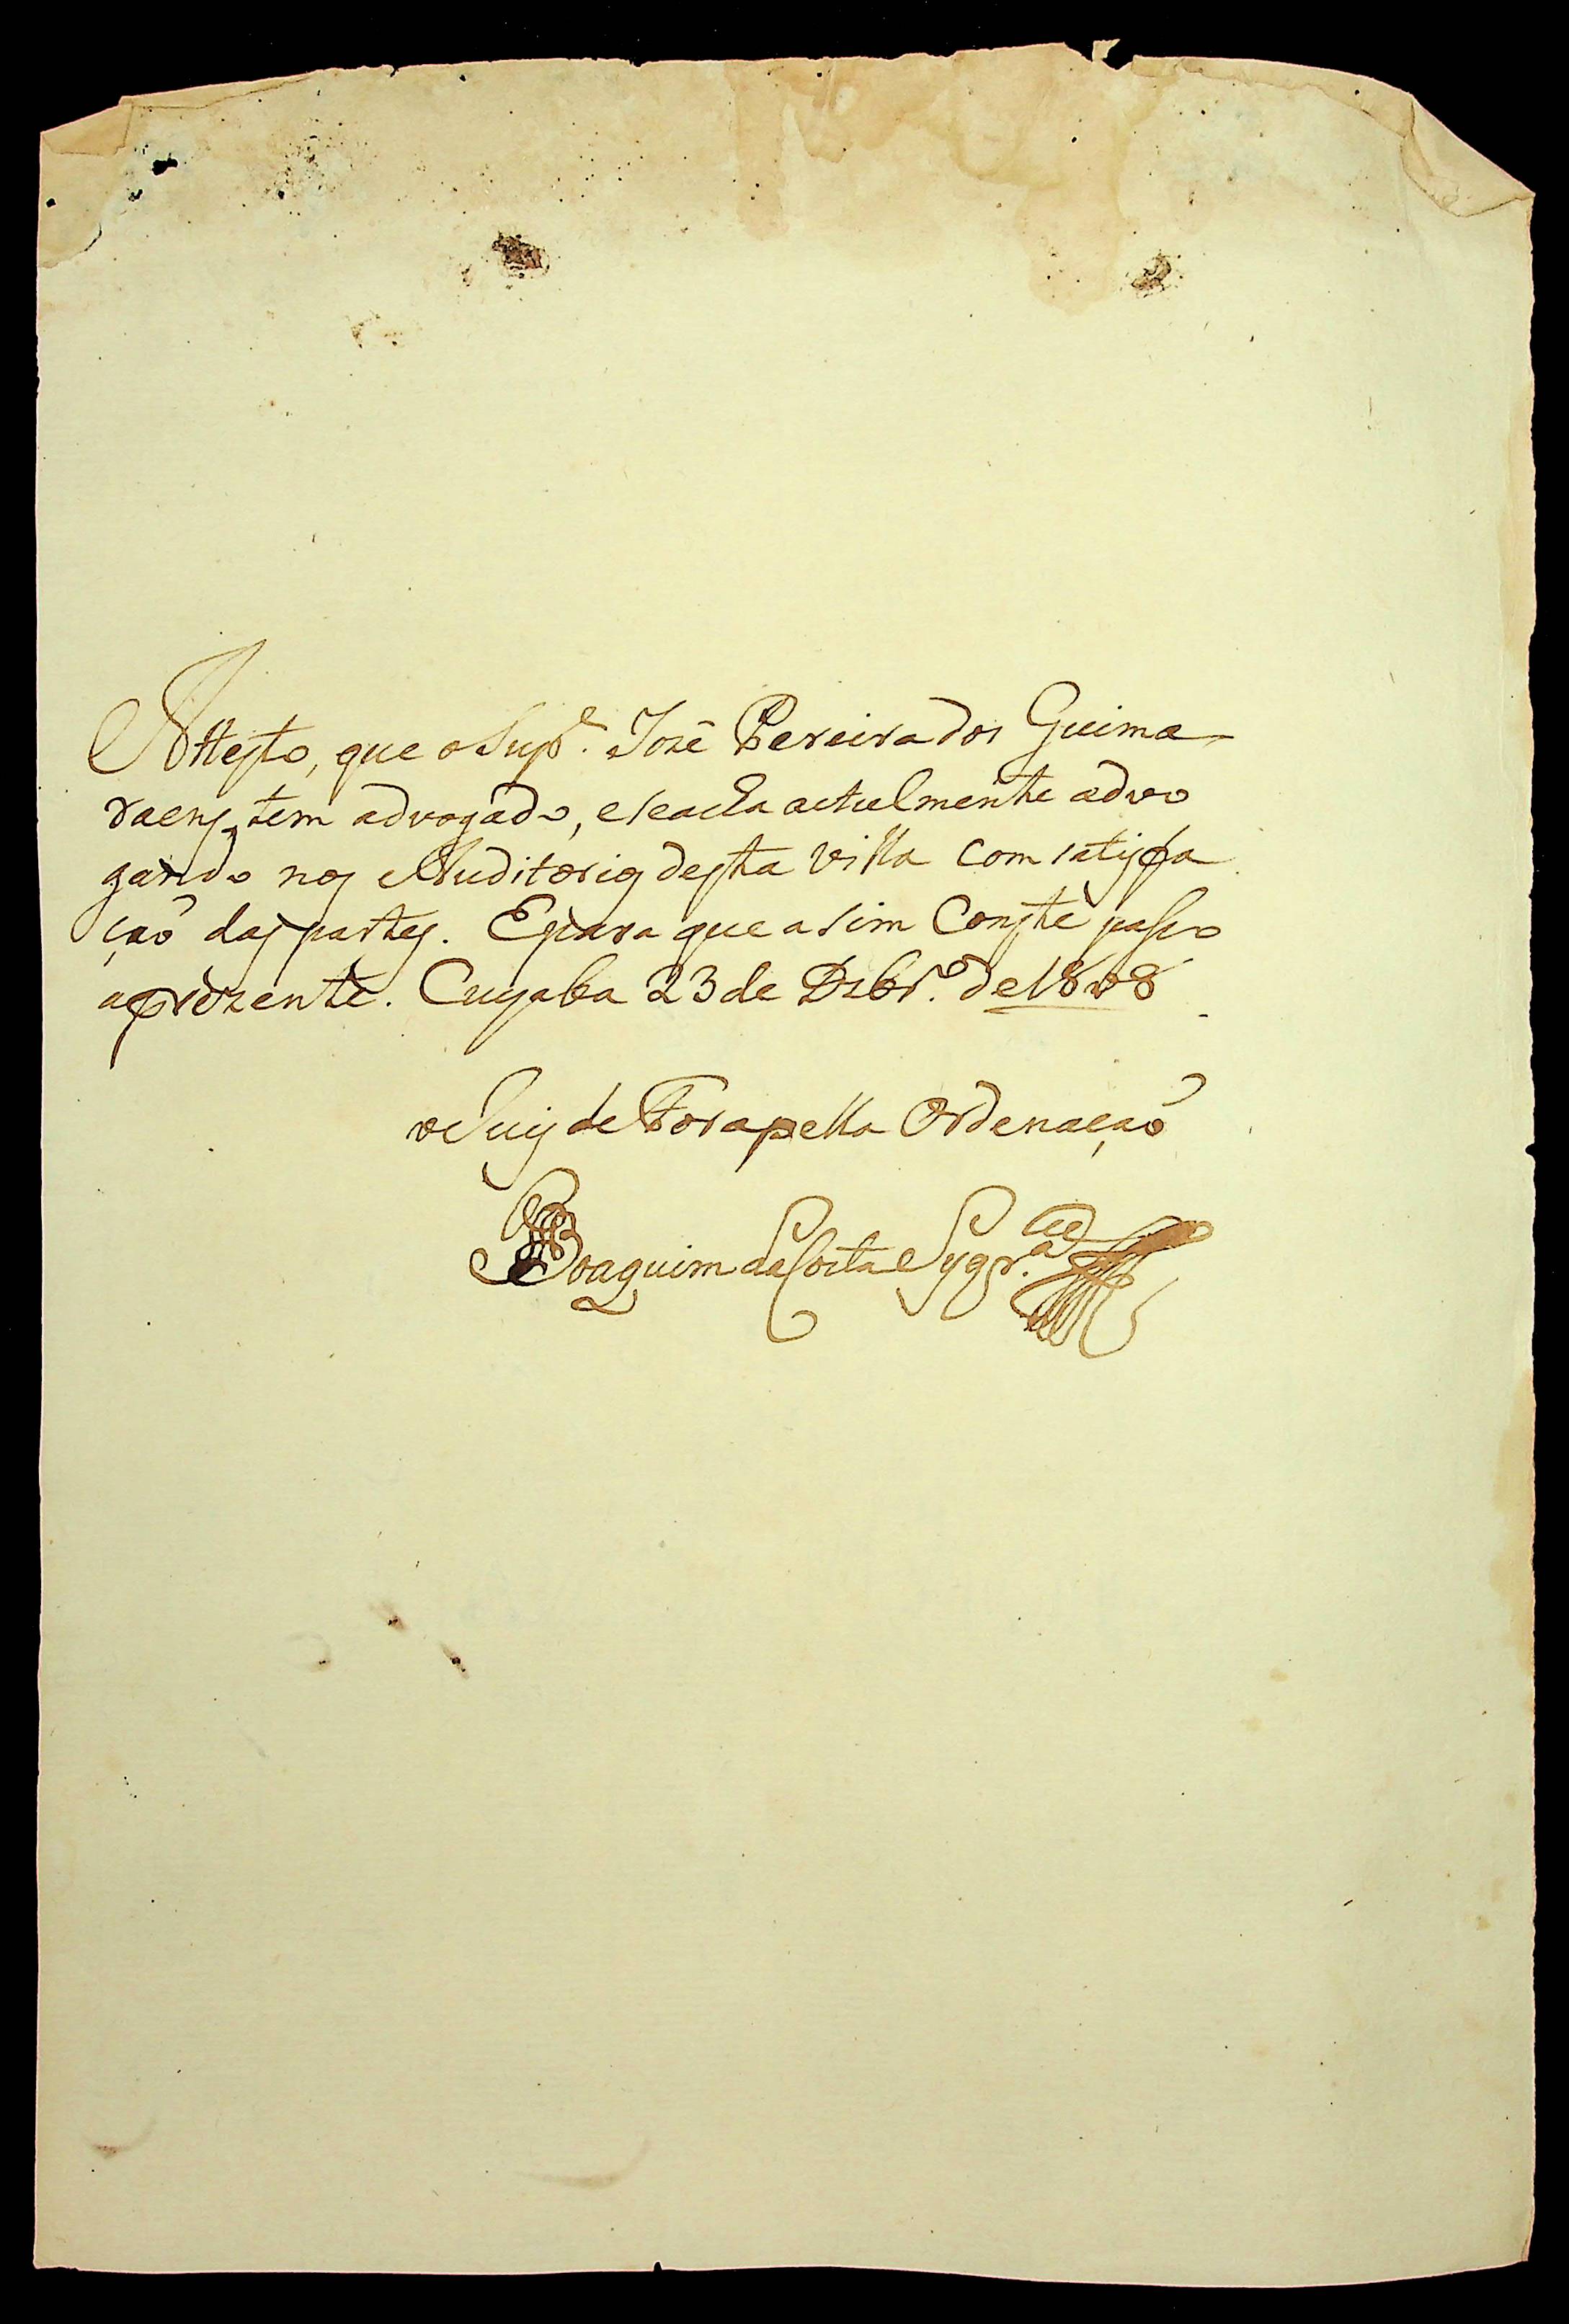 Attesto, que o Sup.e José Pereira dos Guima
raens tem advogado, e se acha actulmente advo
gando nos Auditorios desta Villa com satisfa
çaõ das partes. E para que asim Conste passo
a prezente. Cuyaba 23 de Dzbr.o de 1808
o Juis de Fora pella Ordenaçaõ
Joaquim da Costa e Syqr.a